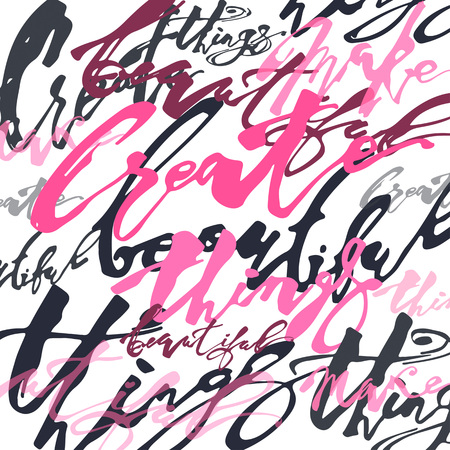 things
Create
beautiful
make
Create
Create
beautiful
beautiful
things
beautiful
things
make
things